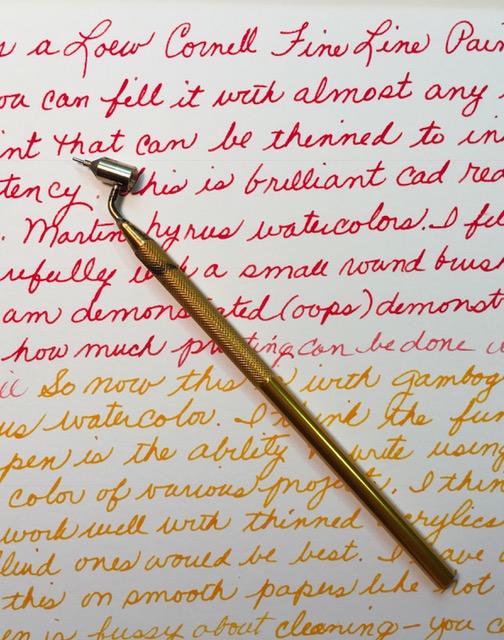 a Loew Cornell Fine Line
you can fill it with almost any
that can be thinned to
This is brilliant cad red
. Martin hyrus watercolors. I
a small round brus
am demonstrated (oops) demonst
how much can be done
So now this is with gambog
us watercolor. I think the fu
pen is the ability write using
color of various project. I thin
work well with thinned acrylics
uid ones would be best. I have
this on smooth papers like hot
en is fussy about cleaning - you